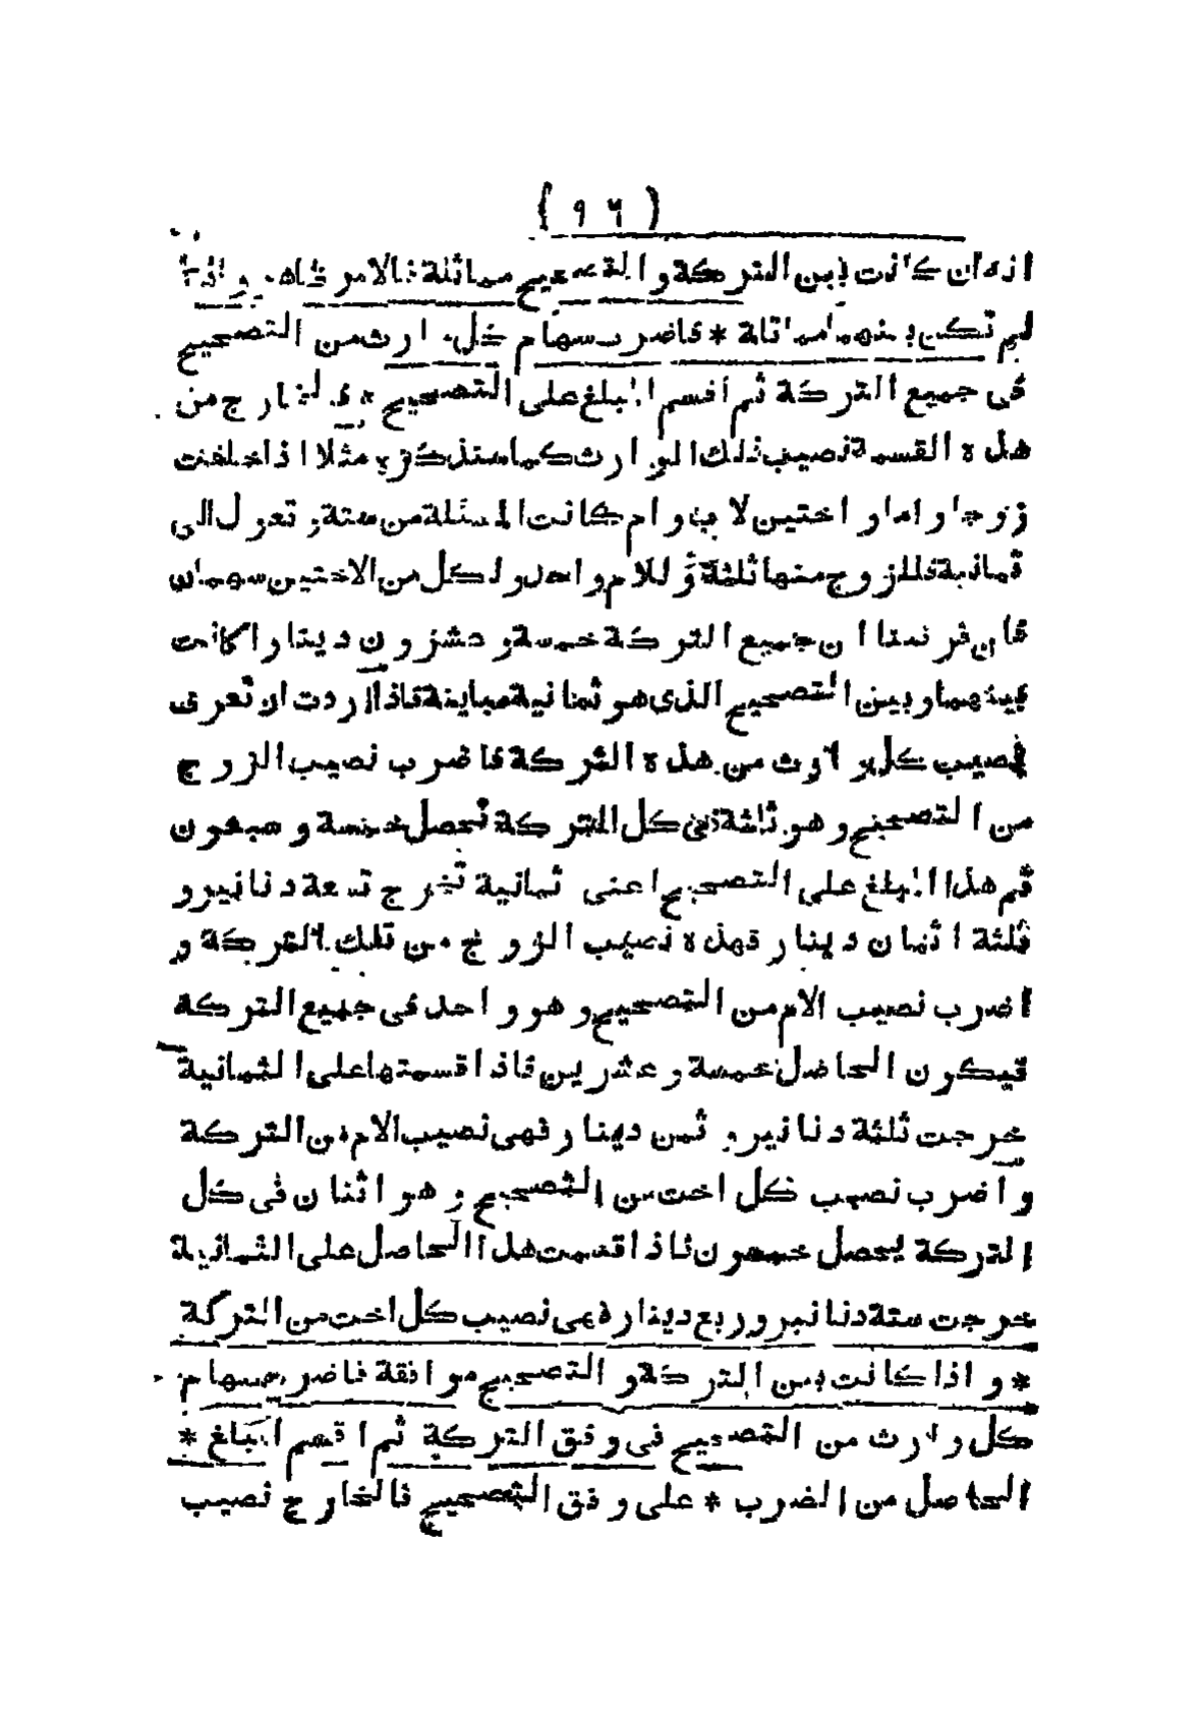 ( ٩٦ )
انه ان كانت بين التركة و التصحيح مماثلة فالامر ظاهر و اذا
لم تكن بينهما مماثلة * فاضرب سهام كل وارث من التصحيح
فى جميع التركة ثم اقسم المبلغ على التصحيح * فالخارج من
هذه القسمة نصيب ذلك الوارث كما سنذكره مثلا اذا خلفت
زوجا و اما و اختين لاب و ام كانت المسئلة من ستة و تعول الى
ثمانية فللزوج منها ثلثة و للام واحد و لكل من الاختين سهمان
فان فرضنا ان جميع التركة خمسة و عشرون دينارا كانت
بينهما و بين التصحيح الذى هو ثمانية مباينة فاذا اردت ان تعرف
نصيب كل وارث من هذه التركة فاضرب نصيب الزوج
من التصحيح و هو ثلثة فى كل التركة تحصل خمسة و سبعون
ثم هذا المبلغ على التصحيح اعنى ثمانية تخرج تسعة دنانير و
ثلثة اثمان دينار فهذه نصيب الزوج من تلك التركة و
اضرب نصيب الام من التصحيح و هو واحد فى جميع التركة
فيكون الحاصل خمسة و عشرين فاذا قسمتها على الثمانية
خرجت ثلثة دنانير و ثمن دينار فهى نصيب الام من التركة
و اضرب نصيب كل اخت من التصحيح و هو اثنان فى كل
التركة يحصل خمسون فاذا قسمت هذا الحاصل على الثمانية
خرجت ستة دنانير و ربع دينار فهى نصيب كل اخت من التركة
* و اذا كانت بين التركة و التصحيح موافقة فاضرب سهام
كل وارث من التصحيح فى وفق التركة ثم اقسم المبلغ *
الحاصل من الضرب * على وفق التصحيح فالخارج نصيب